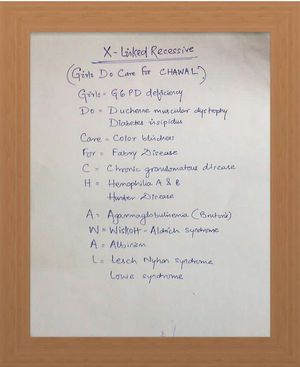 X-Linked Recessive
(Girls Do Care For CHAWAL")
Girls = G6PD deficiency
Do = Duchenne muscular dystophy
Diabetes insipidus
Care = Color blidness
For = Fabry Disease
C = Chronic granulomatous disease
H = Hemophilia A & B
Hunter Disease
A = Agammaglobulinemia (Brutons)
W = Wiskott-Aldrich syndrome
A = Albinism
L = Lesch Nyhan syndrome
Lowe syndrome